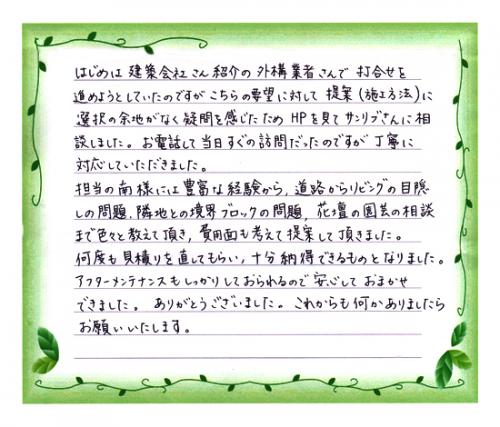 はじめは建築会社さん紹介の外構業者さんで打合せを
進めようとしていたのですがこちらの要望に対して提案(施工方法)に
選択の余地がなく疑問を感じたためHPを見てサンリブさんに相
談しました。お電話して当日すぐの訪問だったのですが丁寧に
対応していただきました。
担当の南様には豊富な経験から、道路からリビングの目隠
しの問題、隣地との境界ブロックの問題、花壇の園芸の相談
まで色々と教えて頂き、費用面も考えて提案して頂きました。
何度も見積りを直してもらい、十分納得できるものとなりました。
アフターメンテナンスもしっかりしておられるので安心しておまかせ
できました。ありがとうございました。これからも何かありましたら
お願いいたします。